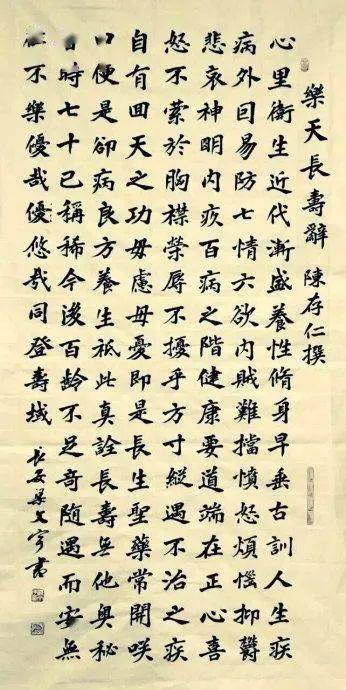 樂天長壽辭 陳存仁撰
心里衛生近代漸盛養性脩身早垂古訓人生疾
病外囙易防七情六欲內賊難擋憤怒煩惱抑鬱
悲哀神明內疚百病之階健康要道端在正心喜
怒不縈於胸襟榮辱不擾乎方寸縱遇不治之疾
自有囬天之功毋慮毋憂即是長生聖藥常開咲
口便是卻病良方養生祇此真詮長壽無他奧秘
時七十已稱稀今後百齡不足奇隨遇而安無
不樂優哉優悠哉同登壽域
長安梁文宇書